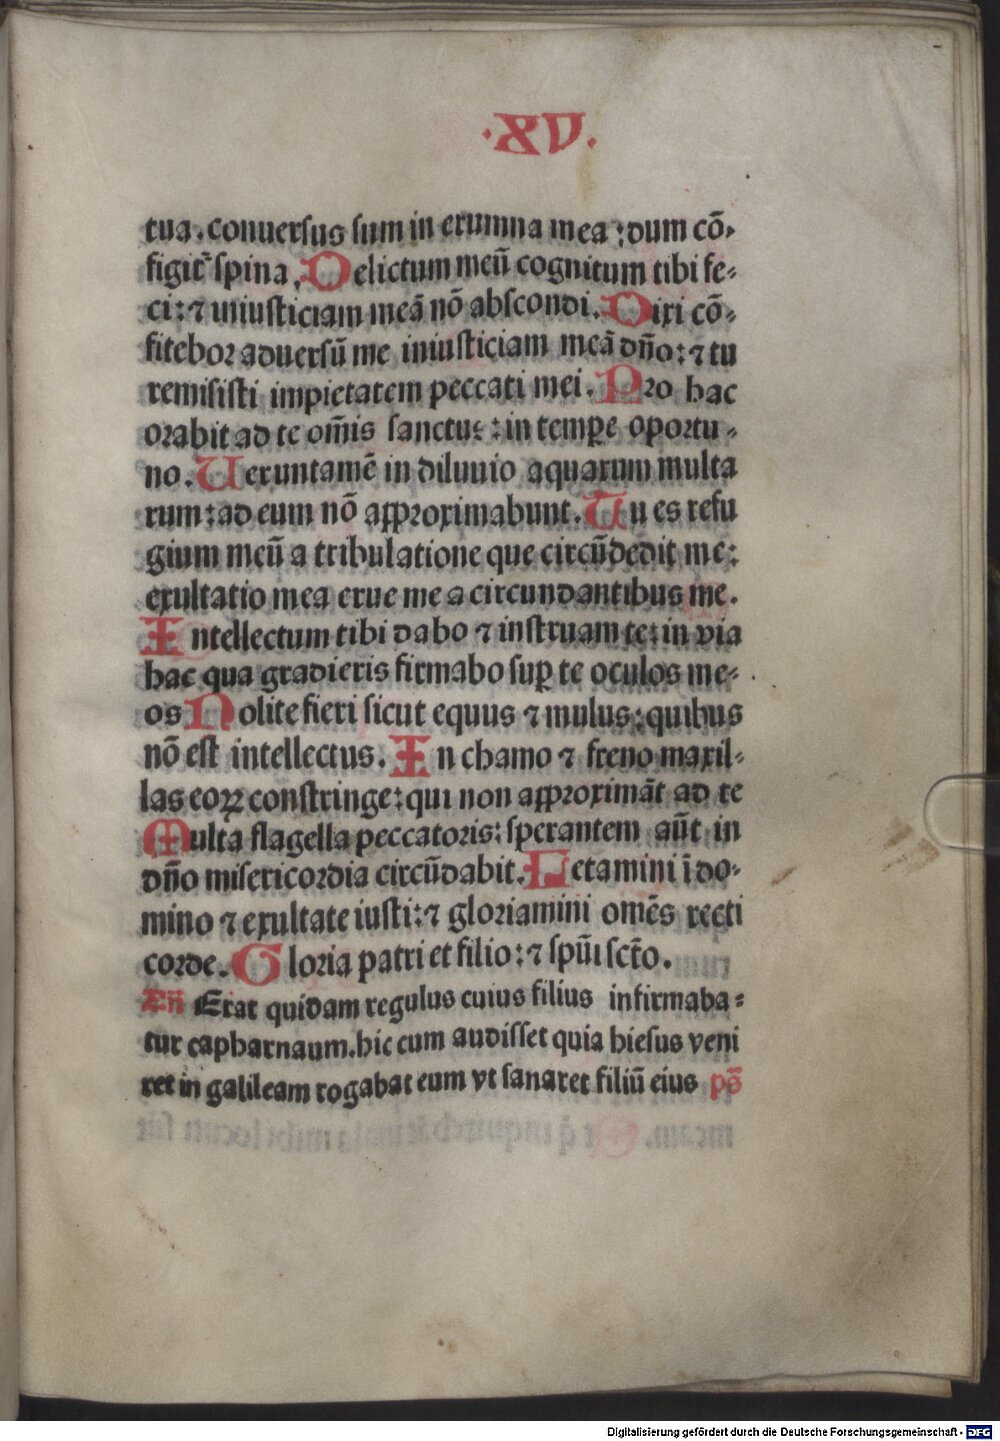 ·XV·
tua. conuersus sum in erumna mea: dum cō-
figit᷑ spina. Delictum meū cognitum tibi fe-
ci: ⁊ iniusticiam meā nō abscondi. Dixi cō-
fitebor aduersū me iniusticiam meā dño: ⁊ tu
remisisti impietatem peccati mei. Pro hac
orabit ad te om̄is sanctus: in temꝑe oportu-
no. Ueruntamē in diluuio aquarum multa
rum: ad eum nō approximabunt. Tu es refu
gium meū a tribulatione que circūdedit me:
exultatio mea erue me a circundantibus me.
Intellectum tibi dabo ⁊ instruam te: in via
hac qua gradieris firmabo suꝑ te oculos me-
os Nolite fieri sicut equus ⁊ mulus: quibus
nō est intellectus. In chamo ⁊ freno maxil-
las eoꝝ constringe: qui non approximāt ad te
Multa flagella peccatoris: sperantem aūt in
dño misericordia circūdabit. Letamini ī do-
mino ⁊ exultate iusti: ⁊ gloriamini omēs recti
corde. Gloria patri et filio: ⁊ spūi scto.
Añ Erat quidam regulus cuius filius infirmaba-
tur capharnaum. hic cum audisset quia hiesus veni
ret in galileam rogabat eum vt sanaret filiū eius ps̄
Digitalisierung gefördert durch die Deutsche Forschungsgemeinschaft - DFG